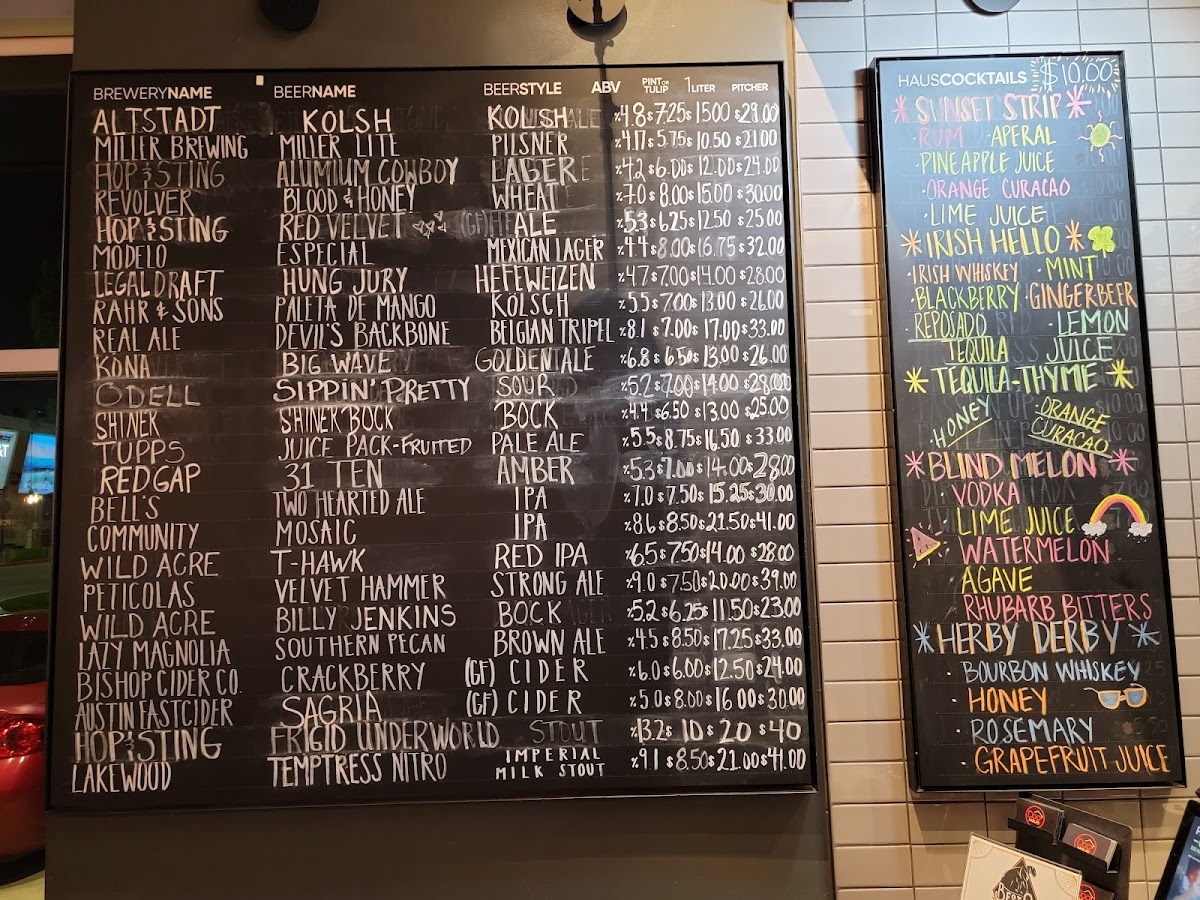 BREWERYNAME BEERNAME BEERSTYLE ABV PINT OR TULIP 1 LITER PITCHER
ALTSTADT KOLSH KOLISH %4.8 $7.25 $15.00 $29.00
MILLER BREWING MILLER LITE PILSNER %4.17 $5.75 $10.50 $21.00
HOP & STING ALUMIUM COWBOY LAGER %4.2 $6.00 $12.00 $24.00
REVOLVER BLOOD & HONEY WHEAT %7.0 $8.00 $15.00 $30.00
HOP & STING RED VELVET ALE %5.3 $6.25 $12.50 $25.00
MODELO ESPECIAL MEXICAN LAGER %4.4 $8.00 $16.75 $32.00
LEGAL DRAFT HUNG JURY HEFEWEIZEN %4.7 $7.00 $14.00 $28.00
RAHR & SONS PALETA DE MANGO KÖLSCH %5.5 $7.00 $13.00 $26.00
REAL ALE DEVIL'S BACKBONE BELGIAN TRIPEL %8.1 $7.00 $17.00 $33.00
KONA BIG WAVE GOLDEN ALE %6.8 $6.50 $13.00 $26.00
ODELL SIPPIN' PRETTY SOUR %5.2 $7.00 $14.00 $28.00
SHINER SHINER BOCK BOCK %4.4 $6.50 $13.00 $25.00
TUPPS JUICE PACK-FRUITED PALE ALE %5.5 $8.75 $16.50 $33.00
RED GAP 31 TEN AMBER %5.3 $7.00 $14.00 $28.00
BELL'S TWO HEARTED ALE IPA %7.0 $7.50 $15.25 $30.00
COMMUNITY MOSAIC IPA %8.6 $8.50 $21.50 $41.00
WILD ACRE T-HAWK RED IPA %6.5 $7.50 $14.00 $28.00
PETICOLAS VELVET HAMMER STRONG ALE %9.0 $7.50 $20.00 $39.00
WILD ACRE BILLY JENKINS BOCK %5.2 $6.25 $11.50 $23.00
LAZY MAGNOLIA SOUTHERN PECAN BROWN ALE %4.5 $8.50 $17.25 $33.00
BISHOP CIDER CO. CRACKBERRY (GF) CIDER %6.0 $6.00 $12.50 $24.00
AUSTIN EASTCIDER SAGRIA (GF) CIDER %5.0 $8.00 $16.00 $30.00
HOP & STING FRIGID UNDERWORLD STOUT %13.2 $10 $20 $40
LAKEWOOD TEMPTRESS NITRO IMPERIAL MILK STOUT %9.1 $8.50 $21.00 $41.00
HAUSCOCKTAILS $10.00
SUNSET STRIP
RUM · APERAL
· PINEAPPLE JUICE
· ORANGE CURACAO
· LIME JUICE
IRISH HELLO
· IRISH WHISKEY · MINT
· BLACKBERRY · GINGERBEER
· REPOSADO TEQUILA · LEMON JUICE
TEQUILA-THYME
· HONEY · ORANGE CURACAO
BLIND MELON
· VODKA
· LIME JUICE
· WATERMELON
· AGAVE
RHUBARB BITTERS
HERBY DERBY
· BOURBON WHISKEY
· HONEY
· ROSEMARY
· GRAPEFRUIT JUICE